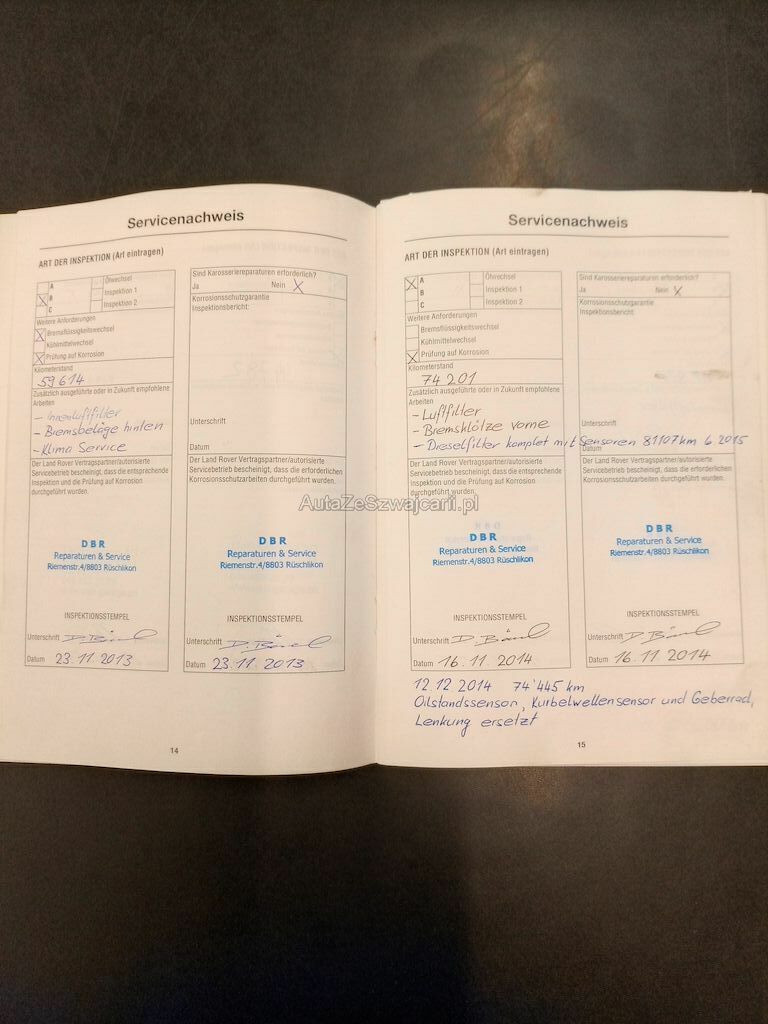 Servicenachweis
ART DER INSPEKTION (Art eintragen)
A Ölwechsel
X B Inspektion 1
C Inspektion 2
Weitere Anforderungen
X Bremsflüssigkeitswechsel
Kühlmittelwechsel
X Prüfung auf Korrosion
Kilometerstand
59614
Zusätzlich ausgeführte oder in Zukunft empfohlene
Arbeiten
- Innenluftfilter
- Bremsbeläge hinten
- Klima Service
Der Land Rover Vertragspartner/autorisierte
Servicebetrieb bescheinigt, dass die entsprechende
Inspektion und die Prüfung auf Korrosion
durchgeführt wurden.
DBR
Reparaturen & Service
Riemenstr.4/8803 Rüschlikon
INSPEKTIONSSTEMPEL
Unterschrift
Datum 23.11.2013
Sind Karosseriereparaturen erforderlich?
Ja Nein X
Korrosionsschutzgarantie
Inspektionsbericht:
Unterschrift
Datum
Der Land Rover Vertragspartner/autorisierte
Servicebetrieb bescheinigt, dass die erforderlichen
Korrosionsschutzarbeiten durchgeführt wurden.
DBR
Reparaturen & Service
Riemenstr.4/8803 Rüschlikon
INSPEKTIONSSTEMPEL
Unterschrift
Datum 23.11.2013
14
Servicenachweis
ART DER INSPEKTION (Art eintragen)
X A Ölwechsel
B Inspektion 1
C Inspektion 2
Weitere Anforderungen
Bremsflüssigkeitswechsel
Kühlmittelwechsel
X Prüfung auf Korrosion
Kilometerstand
74201
Zusätzlich ausgeführte oder in Zukunft empfohlene
Arbeiten
- Luftfilter
- Bremsklötze vorne
- Dieselfilter komplet mit Sensoren 81107km 6 2015
Der Land Rover Vertragspartner/autorisierte
Servicebetrieb bescheinigt, dass die entsprechende
Inspektion und die Prüfung auf Korrosion
durchgeführt wurden.
DBR
Reparaturen & Service
Riemenstr.4/8803 Rüschlikon
INSPEKTIONSSTEMPEL
Unterschrift
Datum 16.11 2014
Sind Karosseriereparaturen erforderlich?
Ja Nein X
Korrosionsschutzgarantie
Inspektionsbericht
Unterschrift
Datum
Der Land Rover Vertragspartner/autorisierte
Servicebetrieb bescheinigt, dass die erforderlichen
Korrosionsschutzarbeiten durchgeführt wurden.
DBR
Reparaturen & Service
Riemenstr.4/8803 Rüschlikon
INSPEKTIONSSTEMPEL
Unterschrift
Datum 16.11 2014
12.12 2014 74'445 km
Oilstandssensor, Kurbelwellensensor und Geberrad,
Lenkung ersetzt
15
AutaZeSzwajcarii.pl